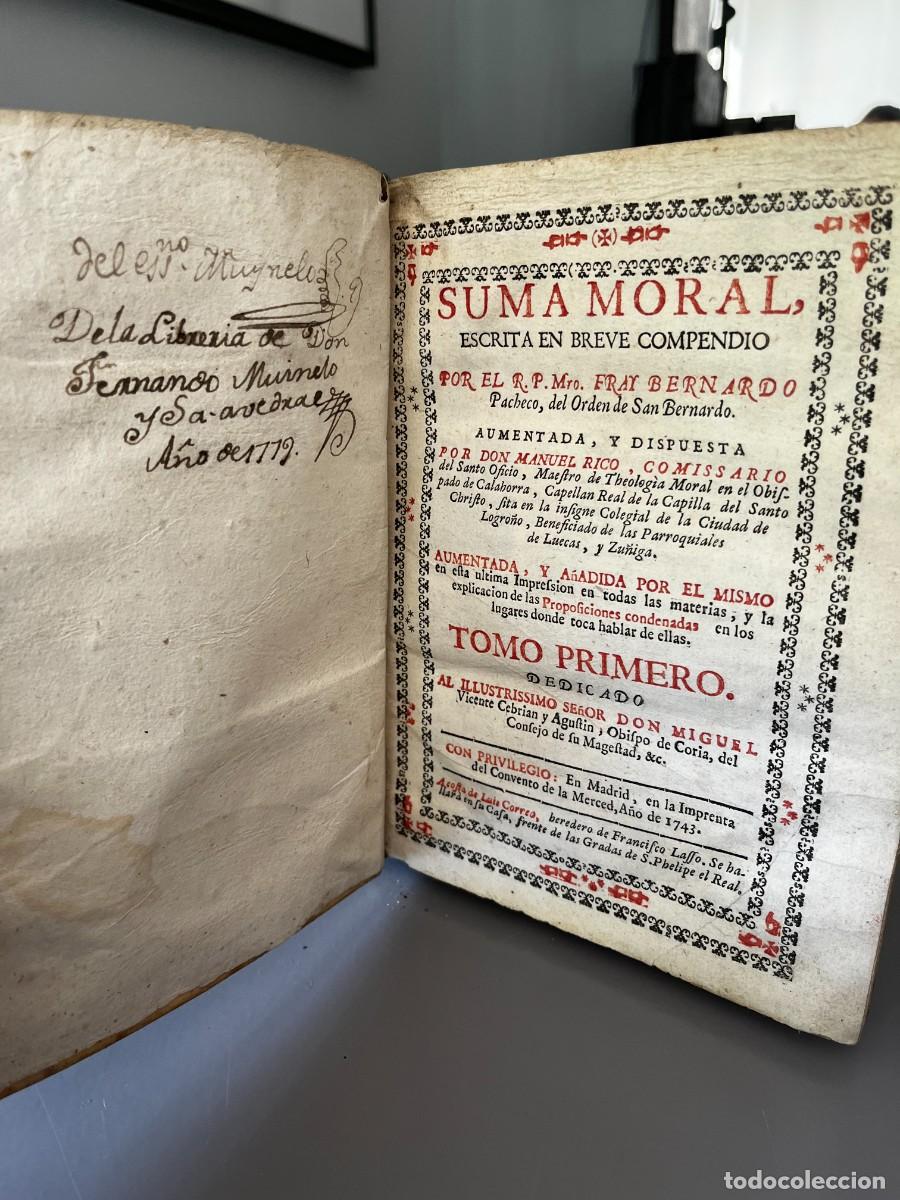 del essno. Muynelo
De la Libreria de Don
Fernando Muinelo
y Sa-avedra
Año de 1779.
SUMA MORAL,
ESCRITA EN BREVE COMPENDIO
POR EL R. P. Mro. FRAY BERNARDO
Pacheco, del Orden de San Bernardo.
AUMENTADA, Y DISPUESTA
POR DON MANUEL RICO, COMISSARIO
del Santo Oficio, Maestro de Theologia Moral en el Obis-
pado de Calahorra, Capellan Real de la Capilla del Santo
Christo, sita en la insigne Colegial de la Ciudad de
Logroño, Beneficiado de las Parroquiales
de Luecas, y Zuñiga.
AUMENTADA, Y AñADIDA POR EL MISMO
en esta ultima Impression en todas las materias, y la
explicacion de las Proposiciones condenadas en los
lugares donde toca hablar de ellas.
TOMO PRIMERO.
DEDICADO
AL ILLUSTRISSIMO SEñOR DON MIGUEL
Vicente Cebrian y Agustin, Obispo de Coria, del
Consejo de su Magestad, &c.
CON PRIVILEGIO: En Madrid, en la Imprenta
del Convento de la Merced, Año de 1743.
Acosta de Luis Correa, heredero de Francisco Lasso. Se ha-
llará en su Casa, frente de las Gradas de S. Phelipe el Real.
todocoleccion